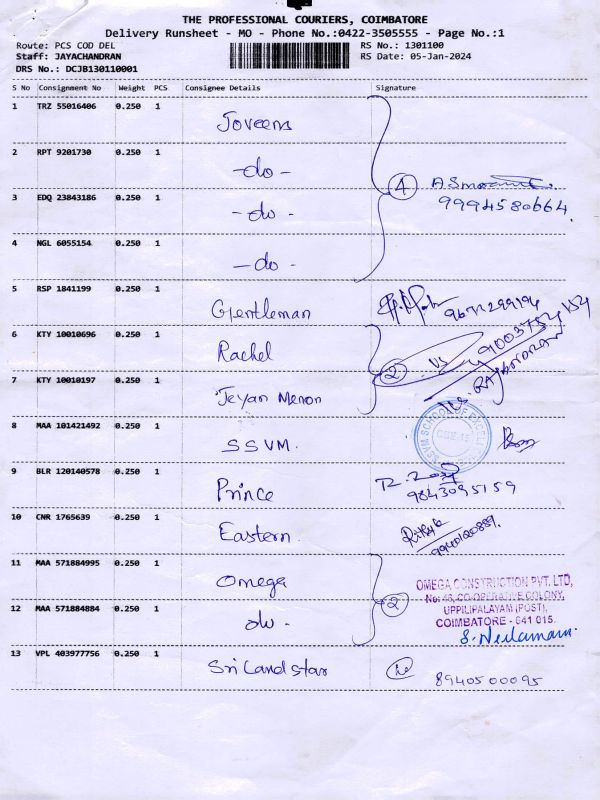 THE PROFESSIONAL COURIERS, COIMBATORE
Delivery Runsheet - MO - Phone No.:0422-3505555 - Page No.:1
Route: PCS COD DEL
RS No.: 1301100
Staff: JAYACHANDRAN
RS Date: 05-Jan-2024
DRS No.: DCJB130110001
S No Consignment No Weight PCS Consignee Details Signature
1 TRZ 55016406 0.250 1 Joveens
2 RPT 9201730 0.250 1 -do-
4
9994580664
3 EDQ 23843186 0.250 1 -do-
4 NGL 6055154 0.250 1 -do-
5 RSP 1841199 0.250 1 Gentleman
6 KTY 10010696 0.250 1 Rachel
2
7 KTY 10010197 0.250 1 Jeyan Menon
8 MAA 101421492 0.250 1 SSVM.
SSVM SCHOOL OF EXCELL
9 BLR 120140578 0.250 1 Prince
9843095159
10 CNR 1765639 0.250 1 Eastern
11 MAA 571884995 0.250 1 Omega
OMEGA CONSTRUCTION PVT. LTD,
No: 46, CO-OPERATIVE COLONY,
2
UPPILIPALAYAM (POST),
12 MAA 571884884 0.250 1 do-
COIMBATORE - 641 015.
13 VPL 403977756 0.250 1 Sri Land star
8940500095